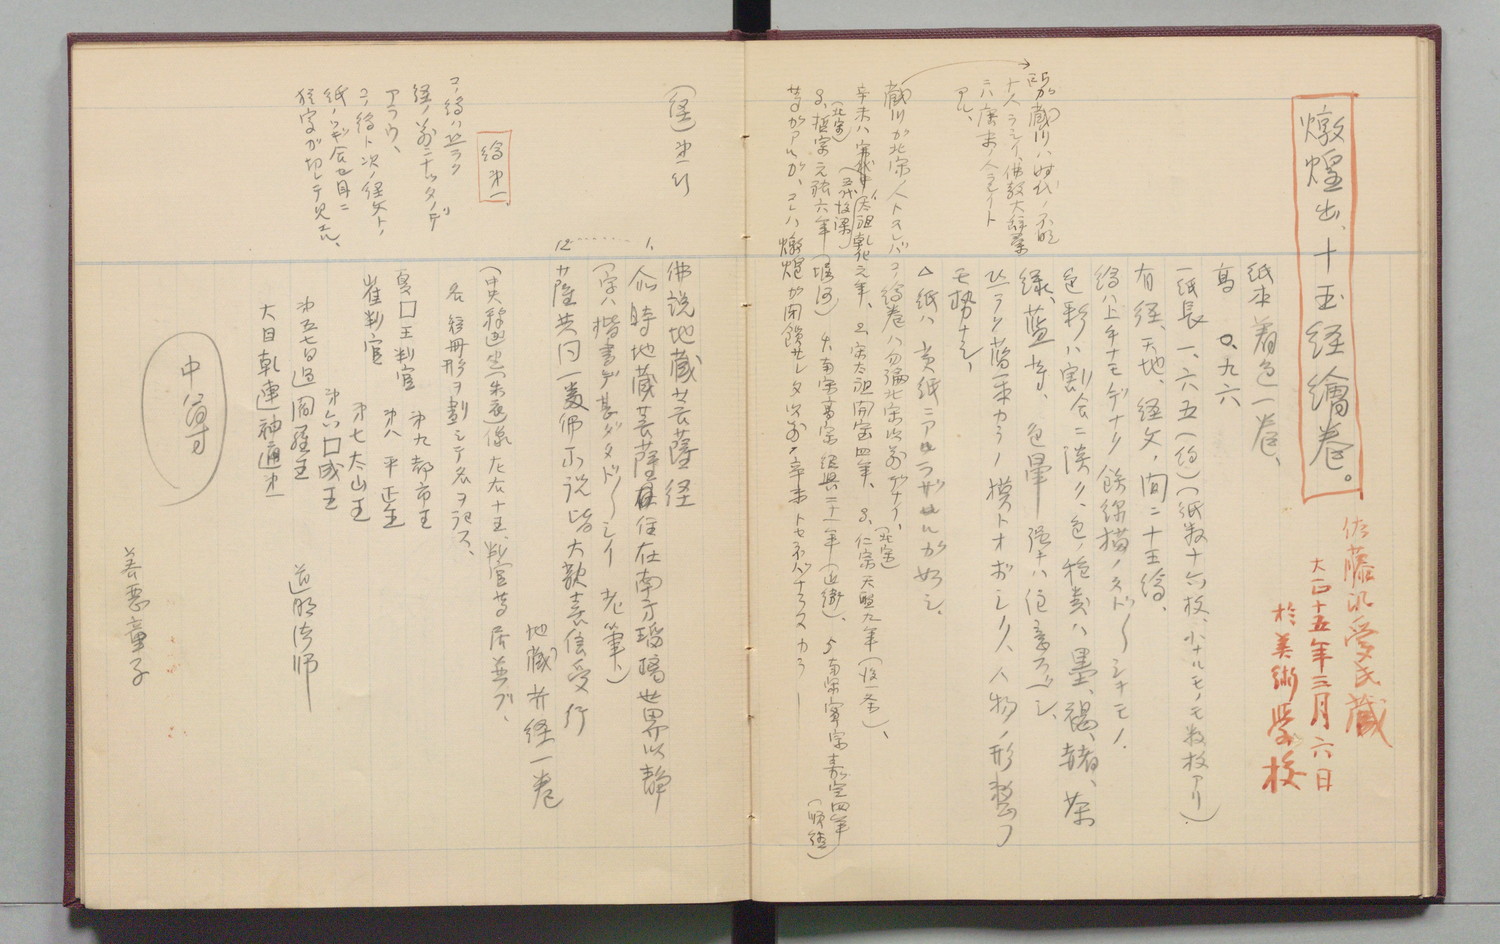 燉煌出、十王経繪巻。
佐藤汎愛氏蔵
大正十五年三月六日
於美術学校
紙本着色一巻、
高 〇、九六
一紙長 一、六五(約)(紙数十六枚、小ナルモノモ数枚アリ)
有経、天地、経文ノ間ニ十王絵、
絵ハ上手ナモノデナク 餘線描ノタド〱シキモノ、
色彩ハ割合ニ淡ク、色ノ種類ハ墨、褐、赭、茶
緑、藍等、色暈強キハ位置スベシ、
恐ラク藍本カラノ摸トオボシク人物ノ形整フ
モ勢ナシ、
△紙ハ黄紙ニアラザルガ如シ、
所ガ蔵川ハ時代ノ不明
ナ人ラシイ、佛教大辞彙
ニハ唐末ノ人ラシイト
アル、
蔵川ガ北宋ノ人トスレバコノ絵巻ハ勿論北宋以前デナイ、
辛未ハ 1、太祖乾化元年、2、宋太祖開宝四年、3、仁宗天聖九年(後一条)、
(五代後梁)
(北宋)
(北宋)
3、哲宗元祐六年(堀河) 4、南宋高宗紹興二十一年(近衛)、5、南宋寧宗嘉定四年
(順徳)
等ガアルガ、コレハ燉煌ガ閉鎖サレタ以前ノ辛未トセネバナラヌカラ—
(経)第一行
1、 佛説地蔵菩薩経
尒時地蔵菩薩住在南方瑠璃世界以静
(字ハ楷書デ甚ダタド〱シイ 老筆)
12 菩薩共同一處佛所説皆大歓喜信受行
地蔵菩薩経一巻
絵第一
コノ絵ハ恐ラク
経ノ前ニナッタノデ
アラウ、
コノ絵ト次ノ経文トノ
紙ノツギ合セ目ニ
経字ガ切レテ見エル、
(中央釋迦坐像)左右十王、判官等居並ブ、
各短冊形ヲ劃シテ名ヲ記ス、
夏□王判官 第九都市王
崔判官 第八平正王
第七太山王
第六□成王
第五七日過閻羅王
大目乾連神通第一
道明法師
中尊
善悪童子